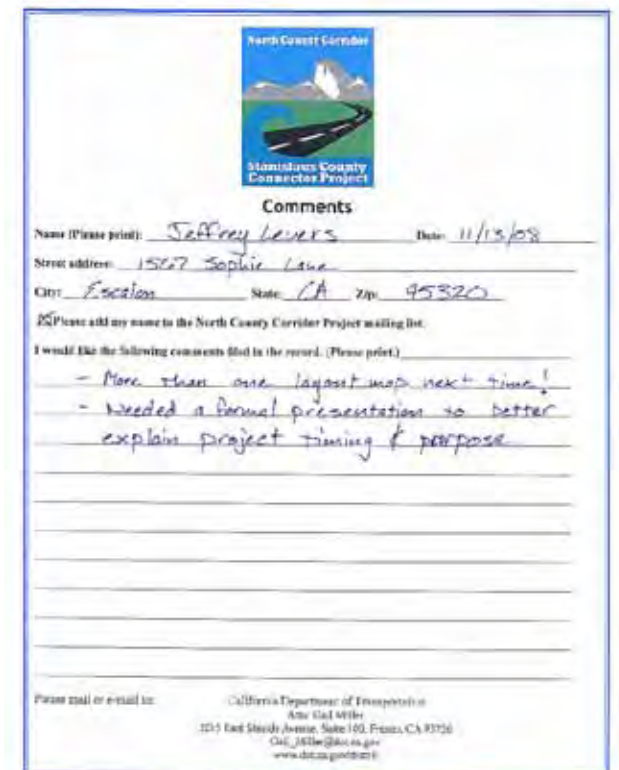 North County Corridor
Stanislaus County
Connector Project
Comments
Name (Please print): Jeffrey Levers Date: 11/13/08
Street address: 1567 Sophie Lane
City: Escalon State: CA Zip: 95320
Please add my name to the North County Corridor Project mailing list.
I would like the following comments filed in the record. (Please print.)
- More than one layout map next time!
- Needed a formal presentation to better
explain project timing & purpose
Please mail or e-mail to: California Department of Transportation
Attn: Gail Miller
East Shields Avenue, Suite 100, Fresno, CA 93726
Gail_Miller@dot.ca.gov